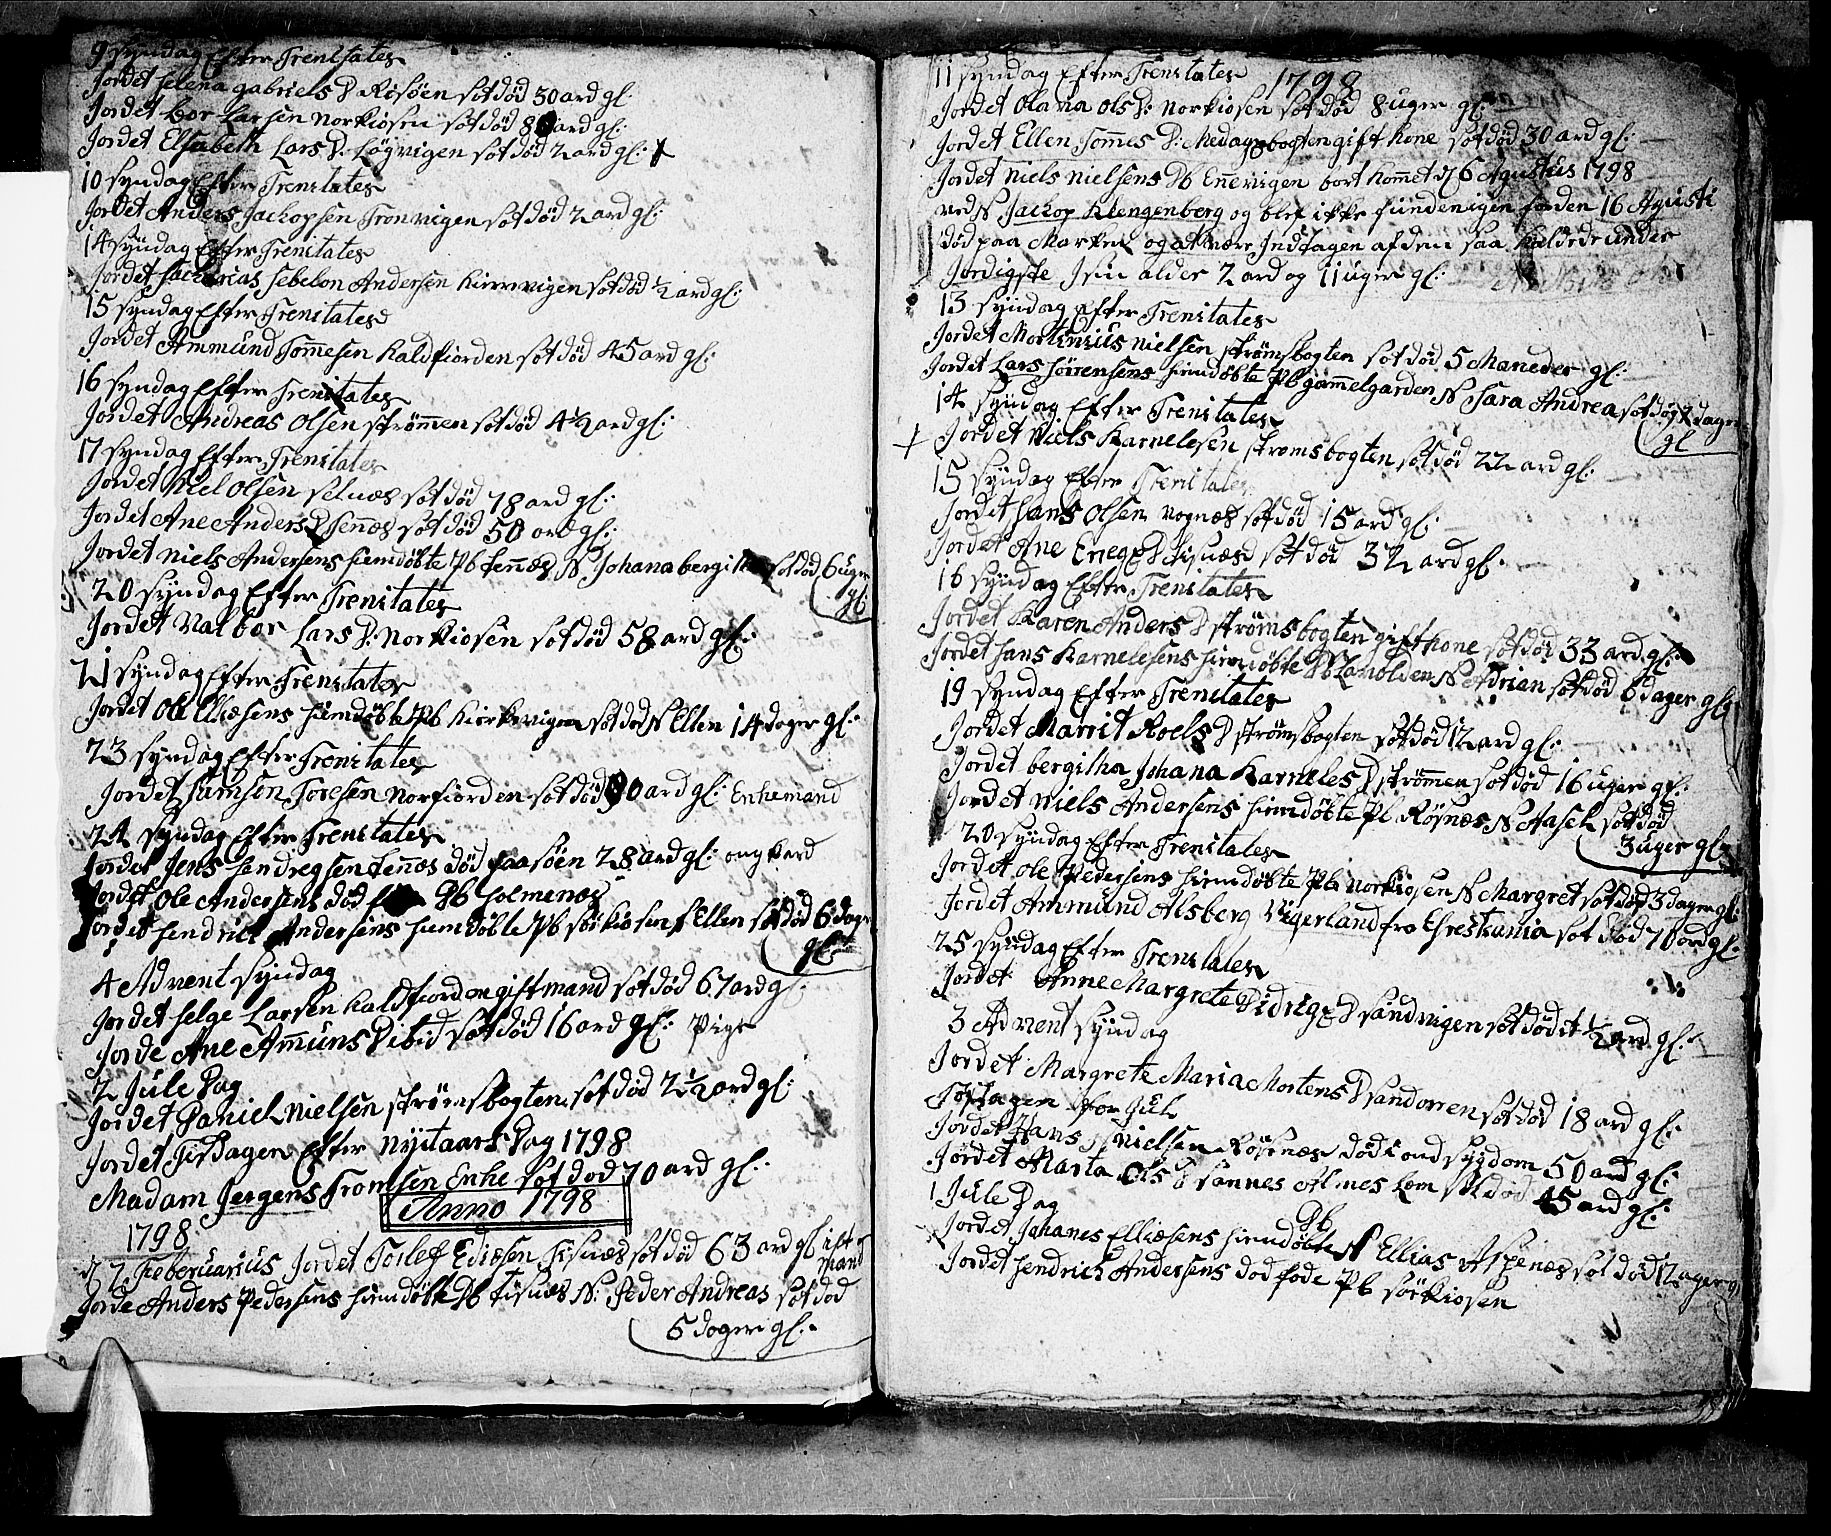 9 syndag Efter Trenitates
Jordet Helena gabriels D Risöen sotdöd 30 ard gl.
Jordet bor Larsen norkiosen sotdöd 80 ard gl:
Jordet Elsabeth Lars D: Løgvigen sotdöd 2 ard gl:
10 syndag Efter Trenitates
Jordet Anders Jachopsen Tronvigen sotdöd 2 ard gl:
14 syndag Efter Trenitates
Jordet Sacharias Sebelon Andersen sotdöd ½ ard gl:
15 syndag Efter Trenitates
Jordet Ammund Tomesen Kaldfiorden sotdöd 45 ard gl:
16 syndag Efter Trenitates
Jordet Andreas Olsen strömen sotdöd 4½ ard gl:
17 syndag Efter Trenitates
Jordet Kiel Olsen selnæs sotdöd 78 ard gl:
Jordet Ane Anders D senæs sotdöd 50 ard gl:
Jordet niels Andersens hiemdöbte Pb senæs N Johana bergitha sotdöd 6 uger
gl:
20 syndag Efter Trenitates
Jordet Valbor Lars D: norkiosen sotdöd 58 ard gl:
21 syndag Efter Trenitates
Jordet Ole Elliæsens hiemdöbte Pb Kiorkevigen sotdod N Ellen 14 doger gl:
23 syndag Efter Trenitates
Jordet Samson Toresen norfiorden sotdöd 90 ard gl: Enkemand
24 syndag Efter Trenitates
Jordet Jens Hendregsen senæs död paa söen 28 ard gl: ongkard
Jordet Ole Andersens död Db Holmenæs
Jordet Hendrich Andersens hiemdöbte Pb sörkiosen N Ellen sotdöd 6 doger
gl:
4 Advent syndag
Jordet Helge Larsen Kaldfiorden giftmand sotdöd 67 ard gl.
Jorde Ane Amuns D ibid sotdöd 16 ard gl: Pige
2 Jule Dag
Jordet Daniel Nielsen strömsbogten sotdöd 2½ ard gl:
Jordet Tisdagen Efter nyitaars Dag 1798
Madam Jørgens Tromsen Enke sotdod 70 ard gl:
Anno 1798
1798
d 2 Februarius Jordet Torlef Ediæsen Tisnæs sotdöd 63 ard gl gift
mand
Jorde Anders Pedersens hiemdöbte Db Tisnæs N: Peder Andreas sotdöd
5 doger gl:
11 syndag Efter Trenitates 1798
Jordet Olana Ols D: norkiosen sotdöd 8 uger gl:
Jordet Ellen Tomes D: Medagsbogten gift kone sotdöd 30 ard gl:
Jordet niels nielsens Db Enevigen bort komet d 6 Agustus 1798
ved N Jachop Klengenberg og blef ikke funden igen forden 16 Agusti
död paa Marken og at være Indtagen af den saa Kaldede under
Jordigste J sin alder 2 ard og 11 uger gl:
13 syndag Efter Trenitates
Jordet Mortinius nielsen strömsbogten sotdöd 5 Maneder gl:
Jordet Lars Sörensens hiemdöbte Pb gammelgarden N Sara Andrea sotdög 2 dager
gl
14 syndag Efter Trenitates
Jordet Niels Karnelesen stromsbogten sotdöd 22 ard gl:
15 syndag Efter Trenitates
Jordet Hans Olsen vognæs sotdöd 15 ard gl:
Jordet Ane Eregs D tisnæs sotdöd 32 ard gl.
16 syndag Efter Trenitates
Jordet Karen Anders D strömsbogten gift kone sotdöd 33 ard gl:
Jordet Hans Karnelesens hiemdöbte Db Laholden N Adrian sotdöd 6 dager gl:
19 syndag Efter Trenitates
Jordet Marrit Roels D strömsbogten sotdöd 12 ard gl:
Jordet bergitha Johana Karneles D strömen sotdöd 16 uger gl:
Jordet Niels Andersens hiemdöbte Pb Rösnæs N Aasel sotdöd
3 uger gl:
20 syndag Efter Trenitates
Jordet Ole Pedersens hiemdöbte Pb norkiosen N Margret sotdöd 3 dager gl:
Jordet Ammund Alsberg Vigerland fra Chrestiania sotdöd 70 ard gl:
25 syndag Efter Trenitates
Jordet Anne Margrete Didrigs D sandvigen sotdödet ½ ard gl:
3 Advent syndag
Jordet Margrete Maria Mortens D sandoren sotdöd 18 ard gl:
Tostagen for Jul
Jordet Hans Nielsen Rösenæs död i ond sygdom 50 ard gl:
Jordet Marta Ols D sannes Lem sotdöd 45 ard gl:
1 Jule Dag
Jordet Johanes Elliæsens hiemdöbte Db N Ellias Aspenæs sotdöd 12 ager g
Jordet Hendrich Andersens dod fode Pb sörkiosen